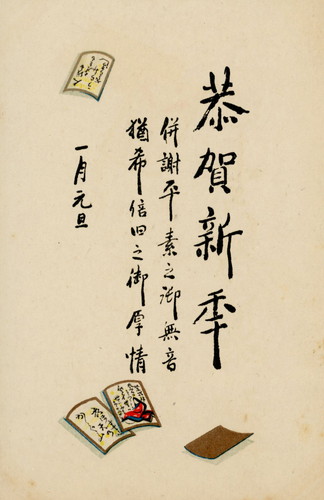 恭賀新年
併謝平素之御無音
猶希倍旧之御厚情
一月元旦